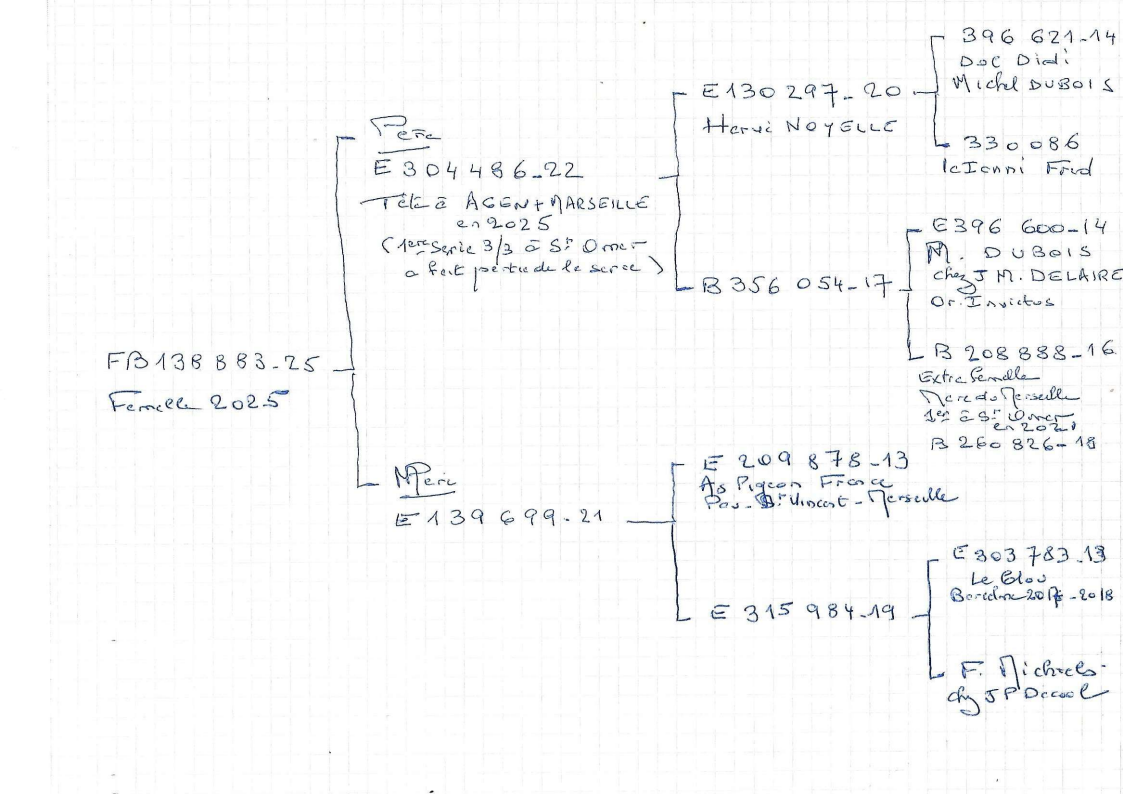 FB 138 883-25
Femelle 2025
Père
E 304 486-22
Tété à AGEN + MARSEILLE
en 2025
(1ere Serie 3/3 à St Omer
a fait partie de la serie)
Mère
E 139 699-21
E 130 297-20
Hervé NOYELLE
B 356 054-17
E 209 878-13
As Pigeon France
Pau-St Vincent-Marseille
E 315 984-19
396 621-14
Doc Didi
Michel DUBOIS
330 086
Fred
E 396 600-14
M. DUBOIS
chez J M. DELAIRE
Or. Invictus
B 208 888-16
Extra femelle
Mere du Marseille
1er à St Omer
en 2021
B 260 826-18
E 303 783-13
Le Blou
Barcelone 2017-2018
F. Michiels
chez J P Decool